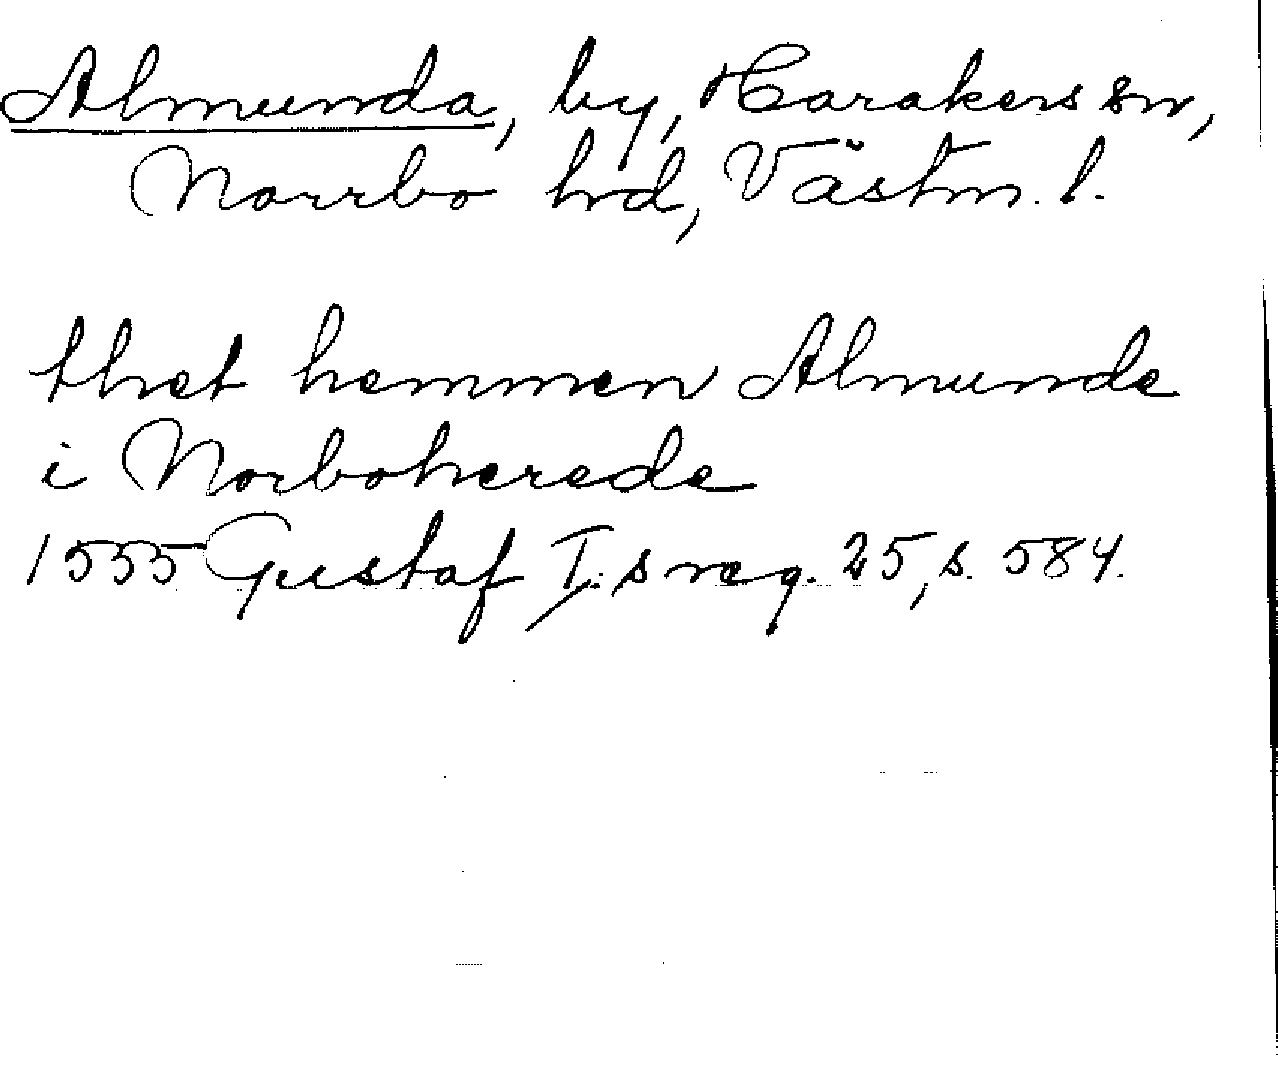 Almunda, by, Harakers sn,
Norrbo hd, Västm. l.
thet hemmen Almunde
i Norboherede
1555 Gustaf I:s reg. 25, s. 584.